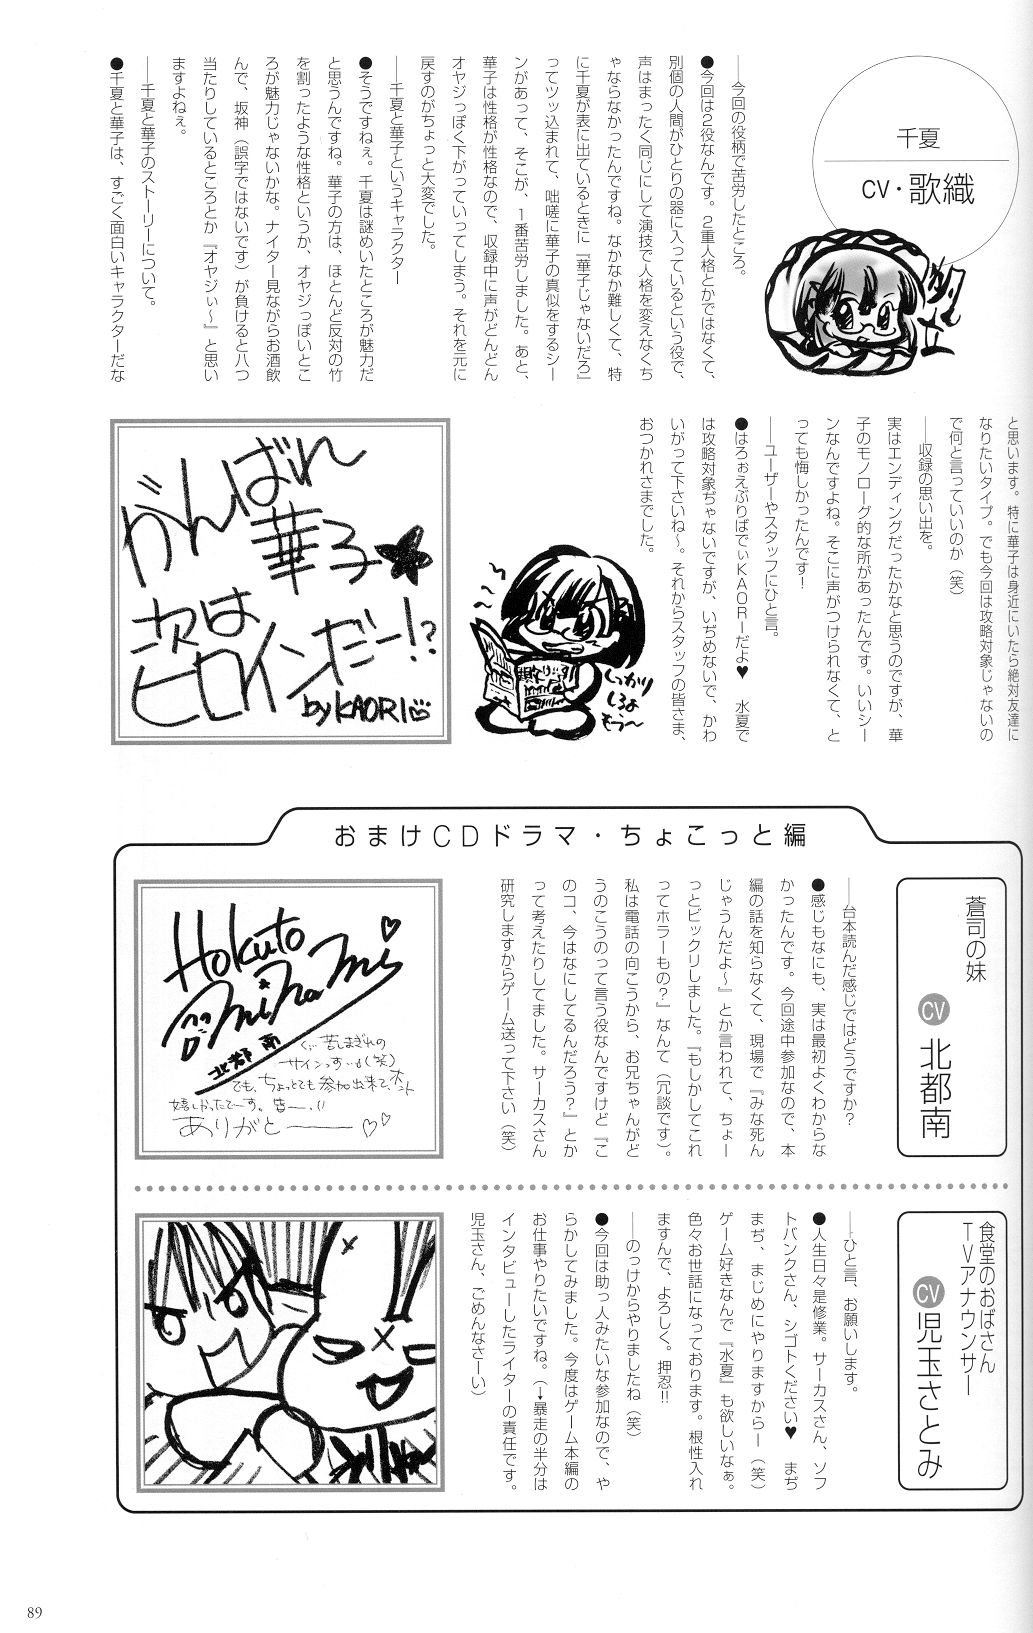 千夏
CV・歌織
――今回の役柄で苦労したところ。
●今回は2役なんです。2重人格とかではなくて、
別個の人間がひとりの器に入っているという役で、
声はまったく同じにして演技で人格を変えなくち
ゃならなかったんですね。なかなか難しくて、特
に千夏が表に出ているときに『華子じゃないだろ』
ってツッ込まれて、咄嗟に華子の真似をするシー
ンがあって、そこが、1番苦労しました。あと、
華子は性格が性格なので、収録中に声がどんどん
オヤジっぽく下がっていってしまう。それを元に
戻すのがちょっと大変でした。
――千夏と華子というキャラクター
●そうですねぇ。千夏は謎めいたところが魅力だ
と思うんですね。華子の方は、ほとんど反対の竹
を割ったような性格というか、オヤジっぽいとこ
ろが魅力じゃないかな。ナイター見ながらお酒飲
んで、坂神（誤字ではないです）が負けると八つ
当たりしているところとか『オヤジぃ～』と思い
ますよねぇ。
――千夏と華子のストーリーについて。
●千夏と華子は、すごく面白いキャラクターだな
と思います。特に華子は身近にいたら絶対友達に
なりたいタイプ。でも今回は攻略対象じゃないの
で何と言っていいのか（笑）
――収録の思い出を。
実はエンディングだったかなと思うのですが、華
子のモノローグ的な所があったんです。いいシー
ンなんですよね。そこに声がつけられなくて、と
っても悔しかったんです！
――ユーザーやスタッフにひと言。
●はろぉえぶりばでぃKAORIだよ♥　水夏で
は攻略対象ぢゃないですが、いぢめないで、かわ
いがって下さいね～。それからスタッフの皆さま、
おつかれさまでした。
しっかり
しろよ
もう～
がんばれ
華子★
次は
ヒロインだー!?
by KAORI
おまけCDドラマ・ちょこっと編
蒼司の妹
CV 北都南
――台本読んだ感じではどうですか？
●感じもなにも、実は最初よくわからな
かったんです。今回途中参加なので、本
編の話を知らなくて、現場で『みな死ん
じゃうんだよ～』とか言われて、ちょー
っとビックリしました。『もしかしてこれ
ってホラーもの？』なんて（冗談です）。
私は電話の向こうから、お兄ちゃんがど
うのこうのって言う役なんですけど『こ
のコ、今はなにしてるんだろう？』とか
って考えたりしてました。サーカスさん
研究しますからゲーム送って下さい（笑）
Hokuto
Minami
北都 南
く… 苦しまぎれの
サインっす…。(笑)
でも、ちょっとでも参加出来て、ホント
嬉しかったでーす。皆ー!!
ありがとーーー♡♡
食堂のおばさん
TVアナウンサー
CV 児玉さとみ
――ひと言、お願いします。
●人生日々是修業。サーカスさん、ソフ
トバンクさん、シゴトください♥　まぢ
まぢ、まじめにやりますからー（笑）
ゲーム好きなんで『水夏』も欲しいなぁ。
色々お世話になっております。根性入れ
ますんで、よろしく。押忍!!
――のっけからやりましたね（笑）
●今回は助っ人みたいな参加なので、や
らかしてみました。今度はゲーム本編の
お仕事やりたいですね。（→暴走の半分は
インタビューしたライターの責任です。
児玉さん、ごめんなさーい）
89